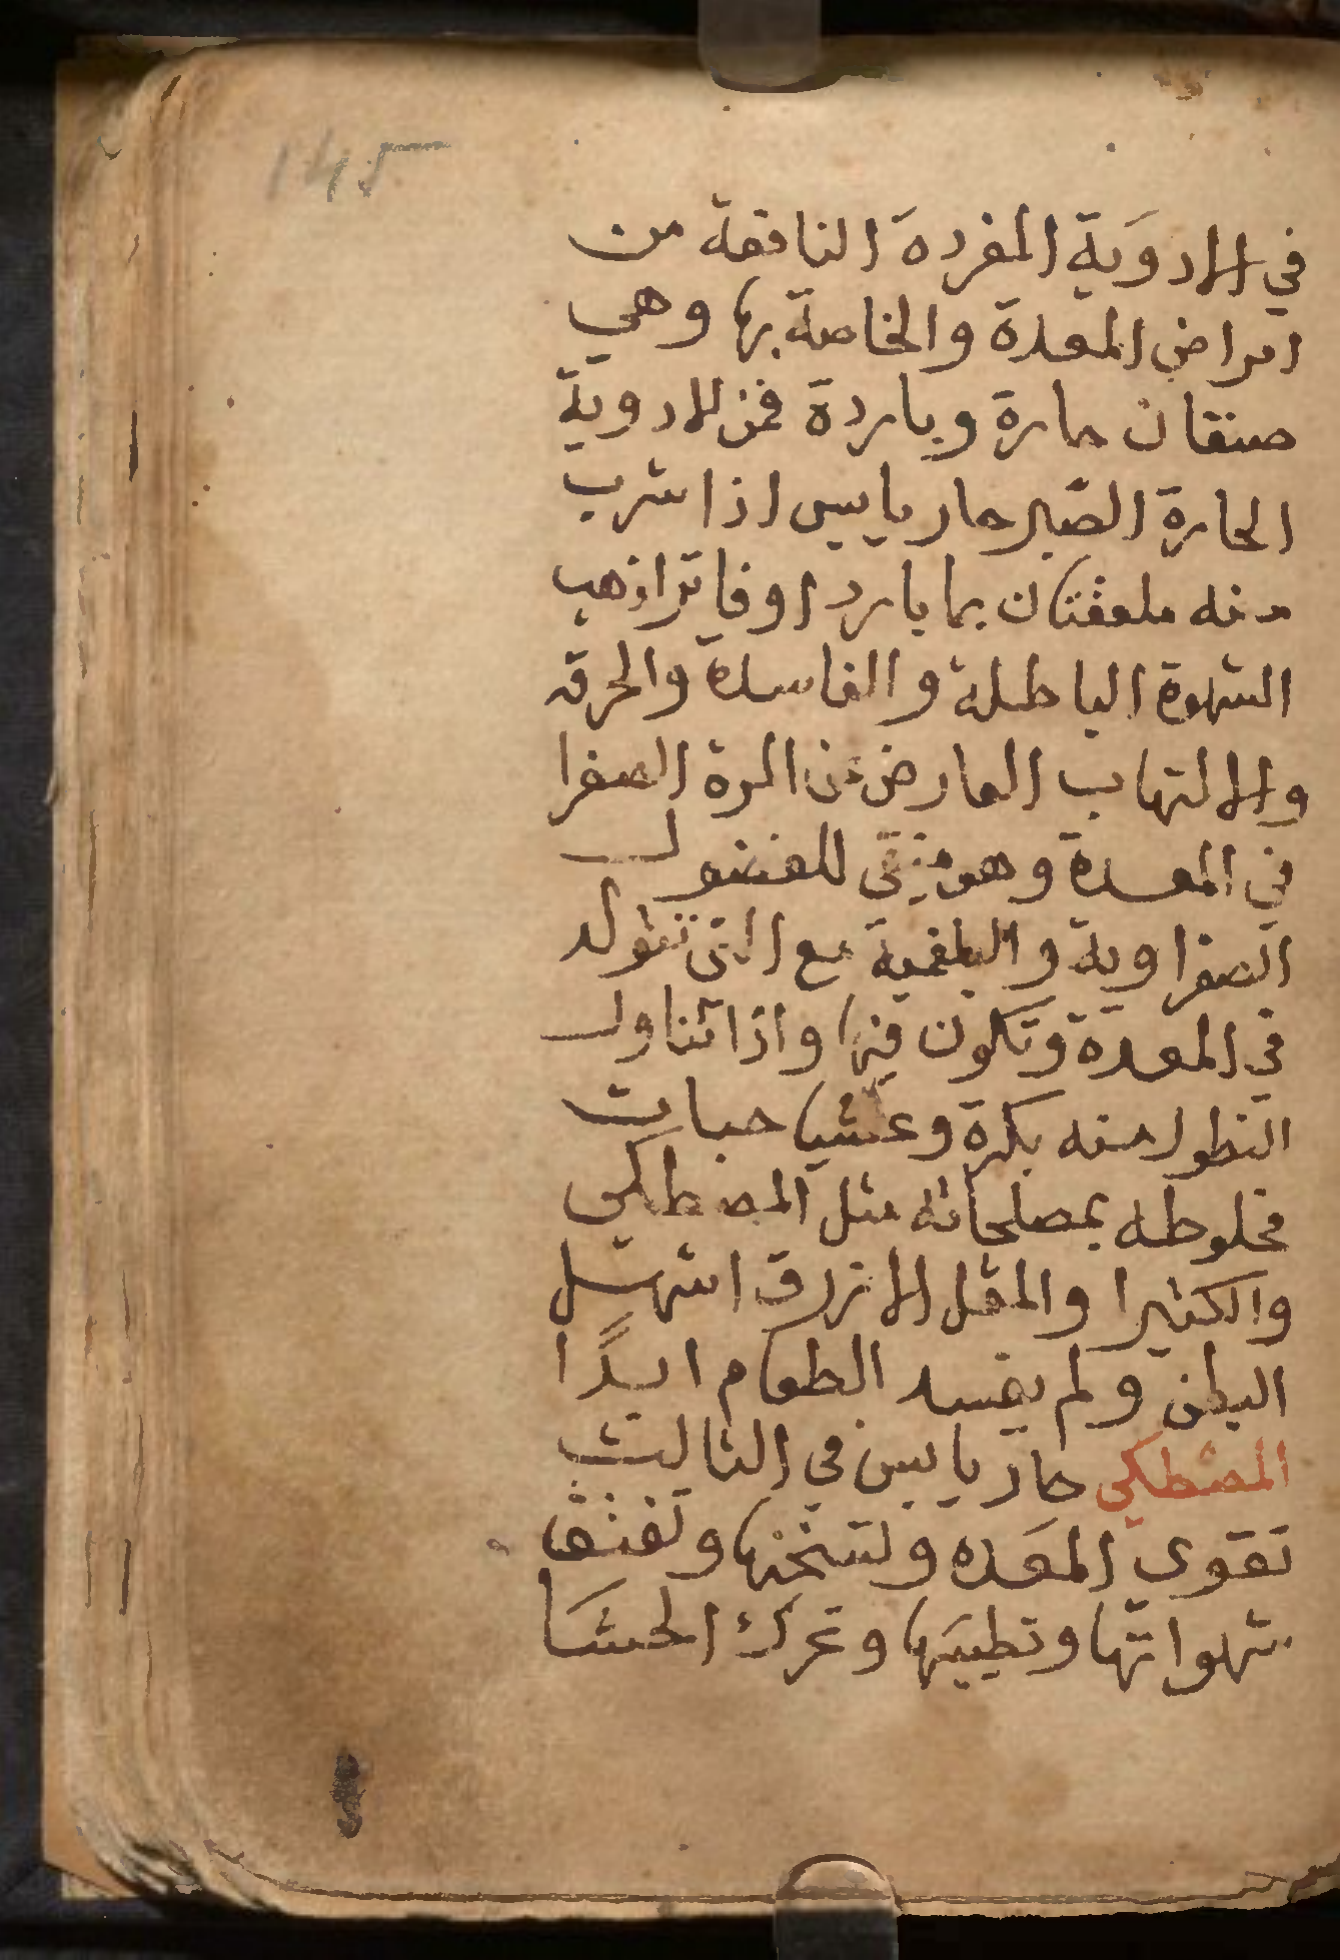 145
في الادوَية المفرده النافعة من
امراض المعدة والخاصة بها وهي
صنفان حارة وباردة فمن الادوية
الحارة الصَبر حار يابس اذا شرب
منه ملعقتان بما بارد او فاترا ذهب
الشهوة الباطلة والفاسدة والحرقه
والالتهاب العارض عن المرة الصفرا
في المعدة وهو منقى للفضول
الصفراوية والبلغمية مع التى تتولد
في المعدة وتكون فيها واذا تناول
منه بكرة وعشيا حبات
مخلوطه بمصلحاته مثل المصطكى
والكثيرا والمقل الازرق اسهل
البطن ولم يفسد الطعام ابدًا
المصطكى حار يابس في الثالث
تقوى المعَده وتسخنها وتفتق
شهواتها وتطيبها وتحرك الجشا